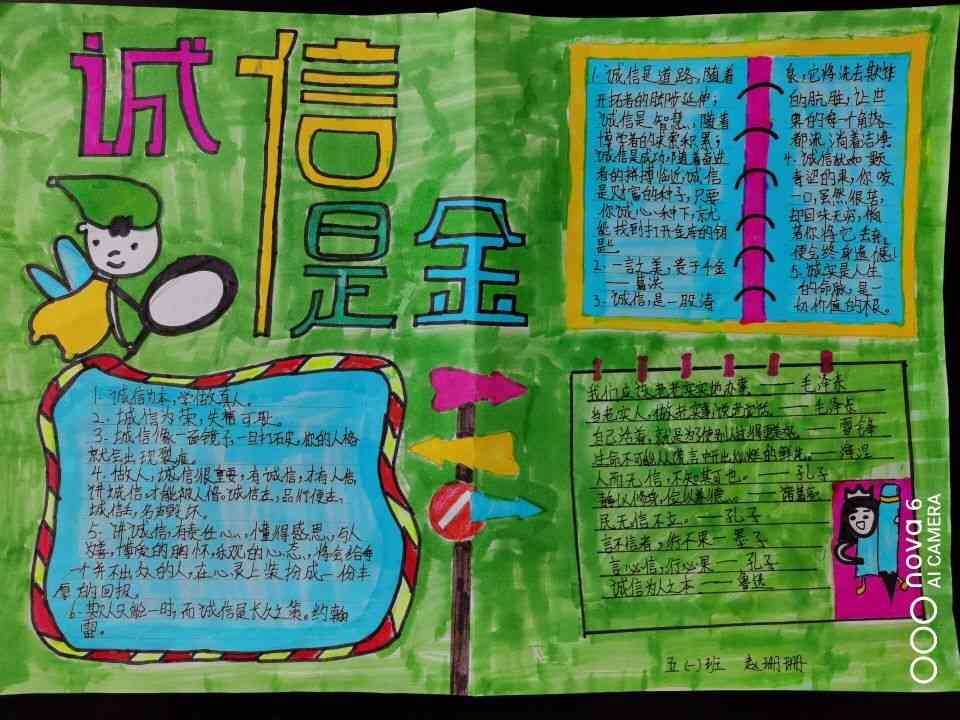 诚信是金
1. 诚信是道路,随着
开拓者的脚步延伸;
诚信是智慧,随着
博学者的求索积累;
诚信是成功,随着奋进
者的拼搏临近;诚信
是财富的种子,只要
你诚心种下,就
能找到打开金库的钥
匙。
2. 一言之美,贵于千金
——葛洪
3. 诚信,是一股清
泉,它将洗去欺诈
的肮脏,让世
界的每一个角落
都流淌着洁净
4. 诚信就如一颗
青涩的果,你咬
一口,虽然很苦,
却回味无穷,倘
若你将它去掉,
便会终身遗憾!
5. 诚实是人生
的命脉,是一
切价值的根。
1. 诚信为本,学做真人。
2. 诚信为荣,失信可耻。
3. 诚信像一面镜子,一旦打破,你的人格
就会出现裂痕。
4. 做人,诚信很重要,有诚信,才有人信,
讲诚信,才能被人信。诚信在,品行便在,
诚信,名声毁坏。
5. 讲诚信,有责任心,懂得感恩,与人
友善,博爱的胸怀,乐观的心态,将会给每
一个并不出众的人,在心灵上装扮成一份丰
厚的回报。
6. 欺人只能一时,而诚信是长久之策。约翰
雷。
我们应该老老实实地办事。——毛泽东
当老实人,做老实事,说老实话。——毛泽东
自己活着,就是为了使别人过得更美好。——雷锋
生命不可能从谎言中开出灿烂的鲜花。——海涅
人而无信,不知其可也。——孔子
民无信不立。——孔子
言不信者,行不果——墨子
言必信,行必果——孔子
诚信为人之本——鲁迅
五(一)班 赵珊珊
nova 6
AI CAMERA